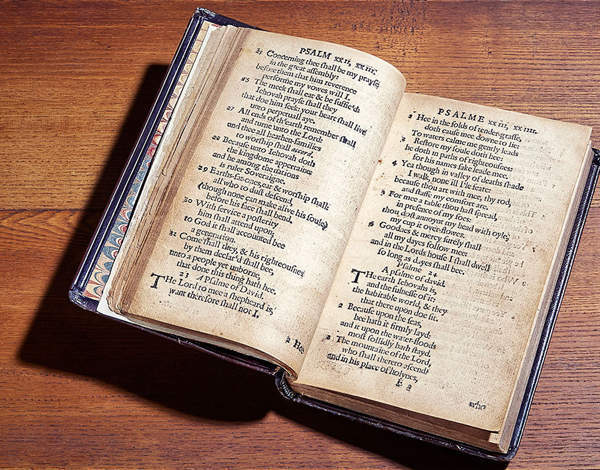 PSALM xxii, xxiii.
25 Concerning thee shall be my prayse
in the great assembly:
before them that him reverence
performe my vowes will I.
26 The meek shall eat & be suffic'd:
Iehovah prayse shall they
that doe him seek: your heart shall live
unto perpetuall aye.
27 All ends of th'earth remember shall
and turne unto the Lord:
and thee all heathen families
to worship shall accord.
28 Because unto Iehovah doth
the kingdome appertaine:
and he among the nations
is ruler Soveraigne.
29 Earths-fat-ones, eat & worship shall:
all who to dust descend,
(though none can make alive his soule)
before his face shall bend.
30 With service a posterity
him shall attend upon;
to God it shall accounted bee
a generation.
31 Come shall they, & his righteousnes
by them declar'd shall bee,
unto a people yet unborne,
that done this thing hath hee.
23 A Psalme of David.
The Lord to mee a shepheard is,
want therefore shall not I.
2 Hee
PSALME xxiii, xxiiii.
2 Hee in the folds of tender-grasse,
doth cause mee downe to lie:
To waters calme me gently leads
3 Restore my soule doth hee:
he doth in paths of righteousnes:
for his names sake leade mee.
4 Yea though in valley of deaths shade
I walk, none ill I'le feare:
because thou art with mee, thy rod,
and staffe my comfort are.
5 For mee a table thou hast spread,
in presence of my foes:
thou dost annoynt my head with oyle,
my cup it over-flowes.
6 Goodnes & mercy surely shall
all my dayes follow mee:
and in the Lords house I shall dwell
so long as dayes shall bee.
Psalme 24
A psalme of david.
The earth Iehovahs is,
and the fulnesse of it:
the habitable world, & they
that there upon doe sit.
2 Because upon the seas,
hee hath it firmly layd:
and it upon the water-floods
most sollidly hath stayd.
3 The mountaine of the Lord,
who shall thereto ascend?
and in his place of holynes,
E 2
who